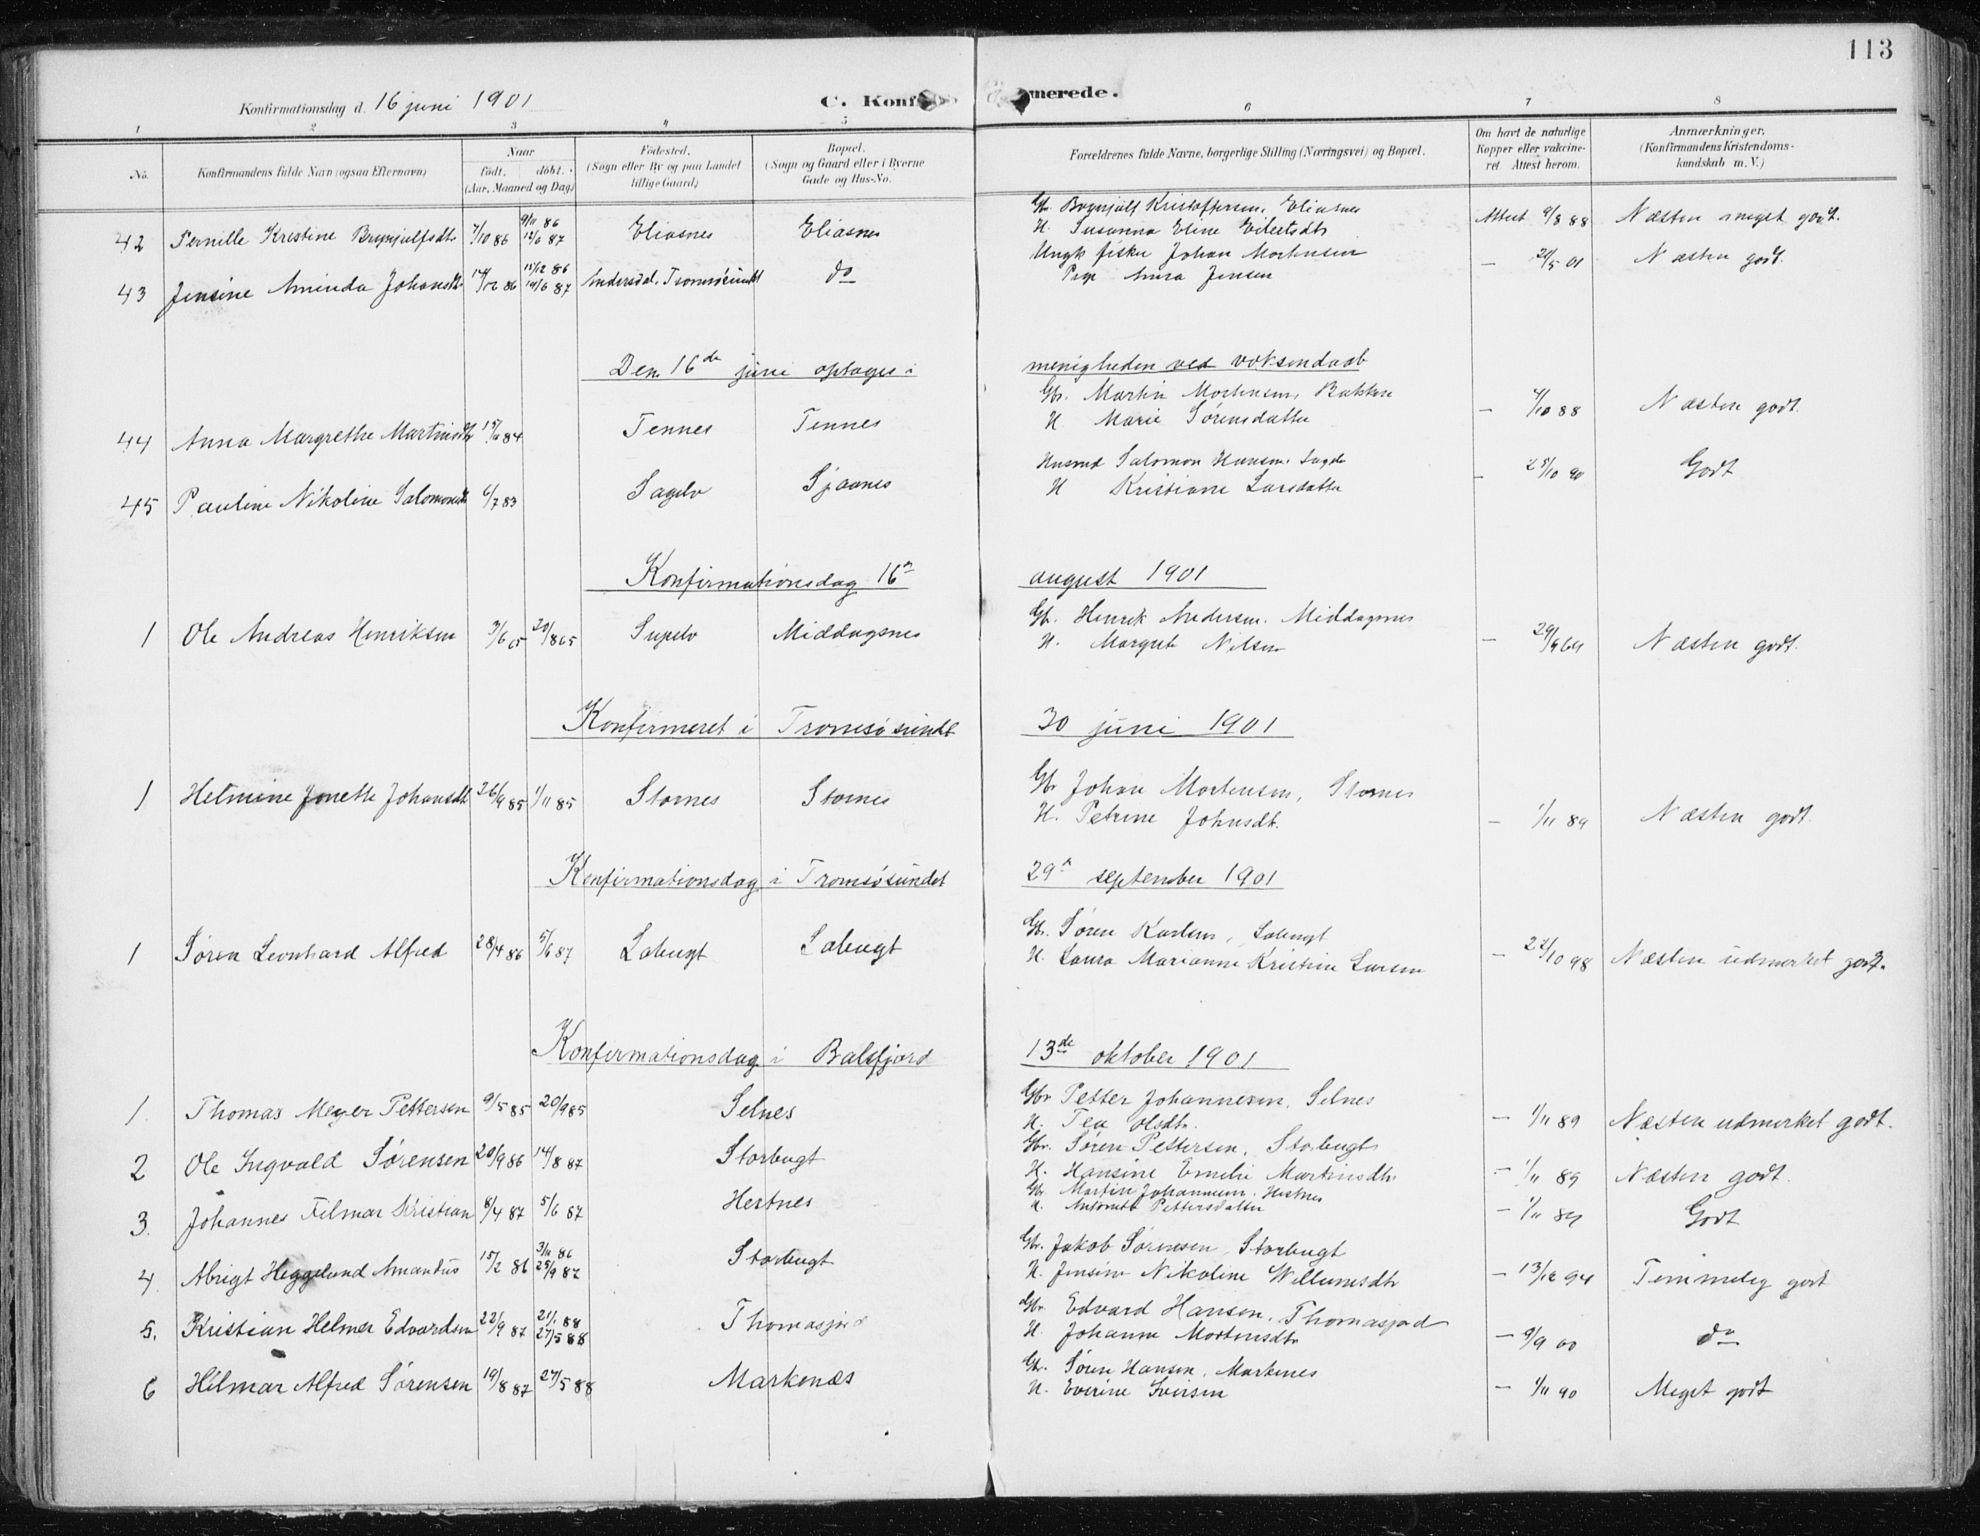 113
Konfirmationsdag d. 16 juni 1901
C. Konfirmerede.
1 2 3 4 5 6 7 8
No. Konfirmandens fulde Navn (ogsaa Efternavn) Naar født. døbt. (Aar, Maaned og Dag) Fødested. (Sogn eller By og paa Landet tillige Gaard) Bopæl. (Sogn og Gaard eller i Byerne Gade og Hus-No. Forældrenes fulde Navne, borgerlige Stilling (Næringsvei) og Bopæl. Om havt de naturlige Kopper eller vakcineret Attest herom. Anmærkninger. (Konfirmandens Kristendomskundskab m. V.)
42 Pernille Kristine Brynjulfsdtr 7/10 86 9/11 86 12/6 87 Eliasnes Eliasnes Gb. Brynjulf Kristoffersen, Eliasnes Attest 9/8 88 Næsten meget godt.
H. Susanna Eline Eilertsdtr
43 Jensine Aminda Johansdtr 14/12 86 15/12 86 19/6 87 Andersdal, Tromsøsundet do Ungk fisker Johan Mortensen — 24/5 01 Næsten godt.
Pige Anna Jensen
Den 16de juni optages i menigheden ved voksendaab
44 Anna Margrethe Martinsdtr 84 Tennes Tennes Gbr. Martin Mortensen, Bakken — 4/10 88 Næsten godt.
H. Marie Sørensdatter
45 Pauline Nikoline Salomonsdtr 6/7 83 Sagelv Sjaanes Husmd Salomon Hansen. — 25/10 90 Godt
H Kristiane Larsdatter
Konfirmationsdag 16de august 1901
1 Ole Andreas Henriksen 3/6 65 20/8 65 Middagsnes Gb. Henrik Andersen. Middagsnes — 29/9 69 Næsten godt.
H. Margrete Nilsen
Konfirmeret i Tromsøsundet 30 juni 1901
1 Helmine Jonette Johansdtr 26/9 85 1/11 85 Stornes Stornes Gb Johan Mortensen, Stornes — 1/11 89 Næsten godt.
H. Petrine Johnsdtr.
Konfirmationsdag i Tromsøsundet 29de september 1901
1 Søren Leonhard Alfred 28/4 86 5/6 87 Labugt Labugt Gbr. Søren Karlsen, Labugt — 22/10 98 Næsten udmerket godt.
H. Laura Marianne Kristine Larsen
Konfirmationsdag i Balsfjord 13de oktober 1901
1. Thomas Meyer Pettersen 9/5 85 20/9 85 Selnes Gbr Petter Johannesen, Selnes — 1/11 89 Næsten udmerket godt.
H. Tea Olsdtr.
2 Ole Ingvald Sørensen 20/9 86 14/8 87 Storbugt Gbr. Søren Pettersen, Storbugt — 1/11 89 Næsten godt.
H. Hansine Emelie Martinsdtr
3. Johannes Filmar Kristian 8/4 87 5/6 87 Hertnes Gb Martin Johannesen. Hestnes — 1/11 89 Godt
H. Antonette Pettersdatter
4. Abrigt Heggelund Amandus 15/2 86 3/11 86 25/9 87 Storbugt Gb. Jakob Sørensen, Storbugt — 13/12 94 Temmelig godt
H. Jensine Nikoline Willumsdtr
5. Kristian Helmer Edvardsen 22/9 87 21/1 88 27/5 88 Thomasjord Gbr. Edvard Hansen, Thomasjord — 9/9 00 do
H. Johanne Mortensdtr
6 Hilmar Alfred Sørensen 19/8 87 27/5 88 Markenæs Gb. Søren Hansen, Markenes — 1/11 90 Meget godt
H. Everine Iversen